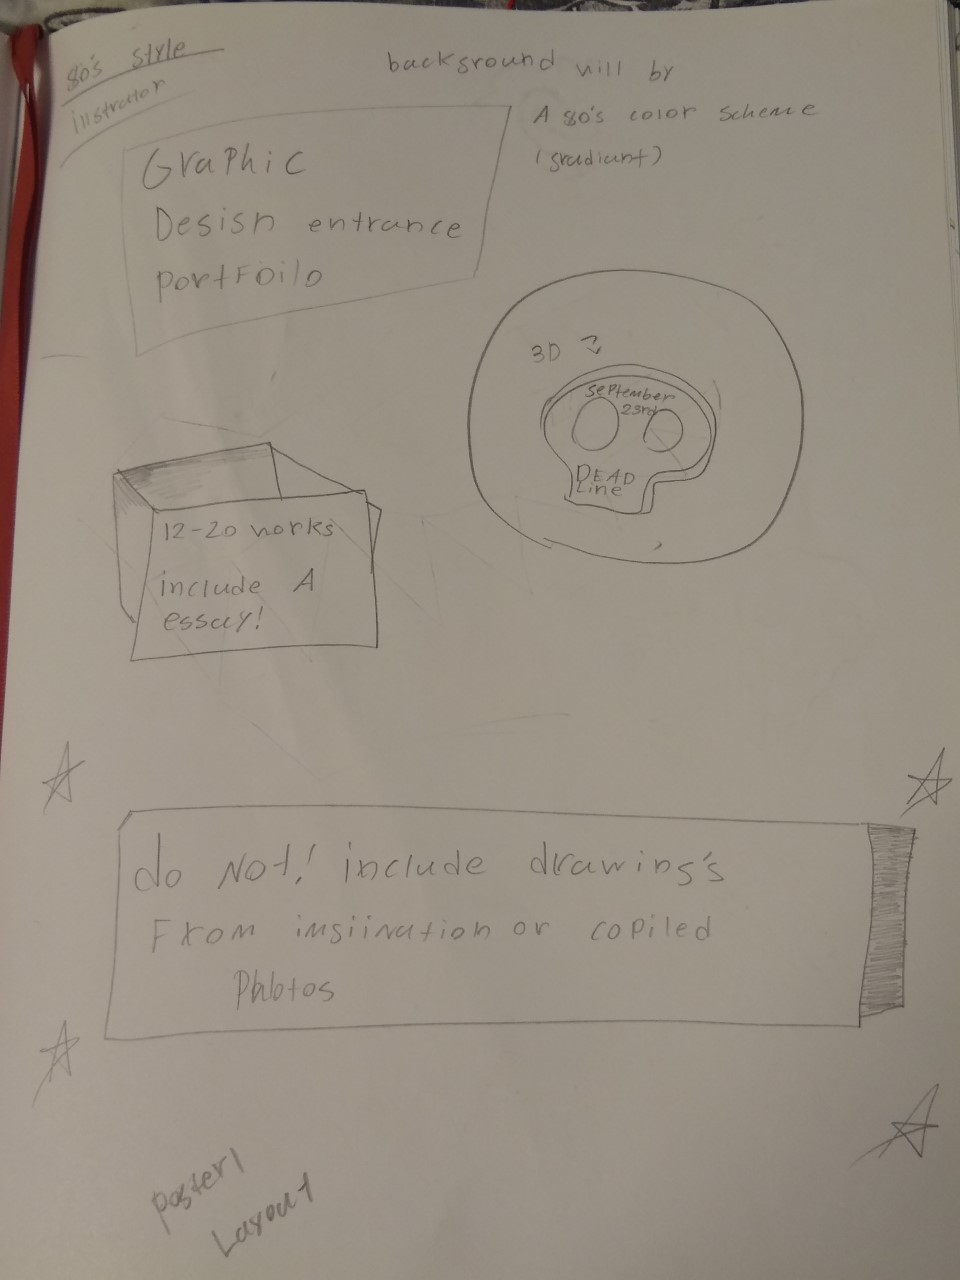 80's style
illstrator
background will by
A 80's color scheme
(gradiant)
Graphic
Design entrance
Portfoilo
3D
September
23rd
DEAD
Line
12-20 works
include A
essay!
do Not! include drawing's
From imgiination or copiled
Photos
Poster 1
Layout